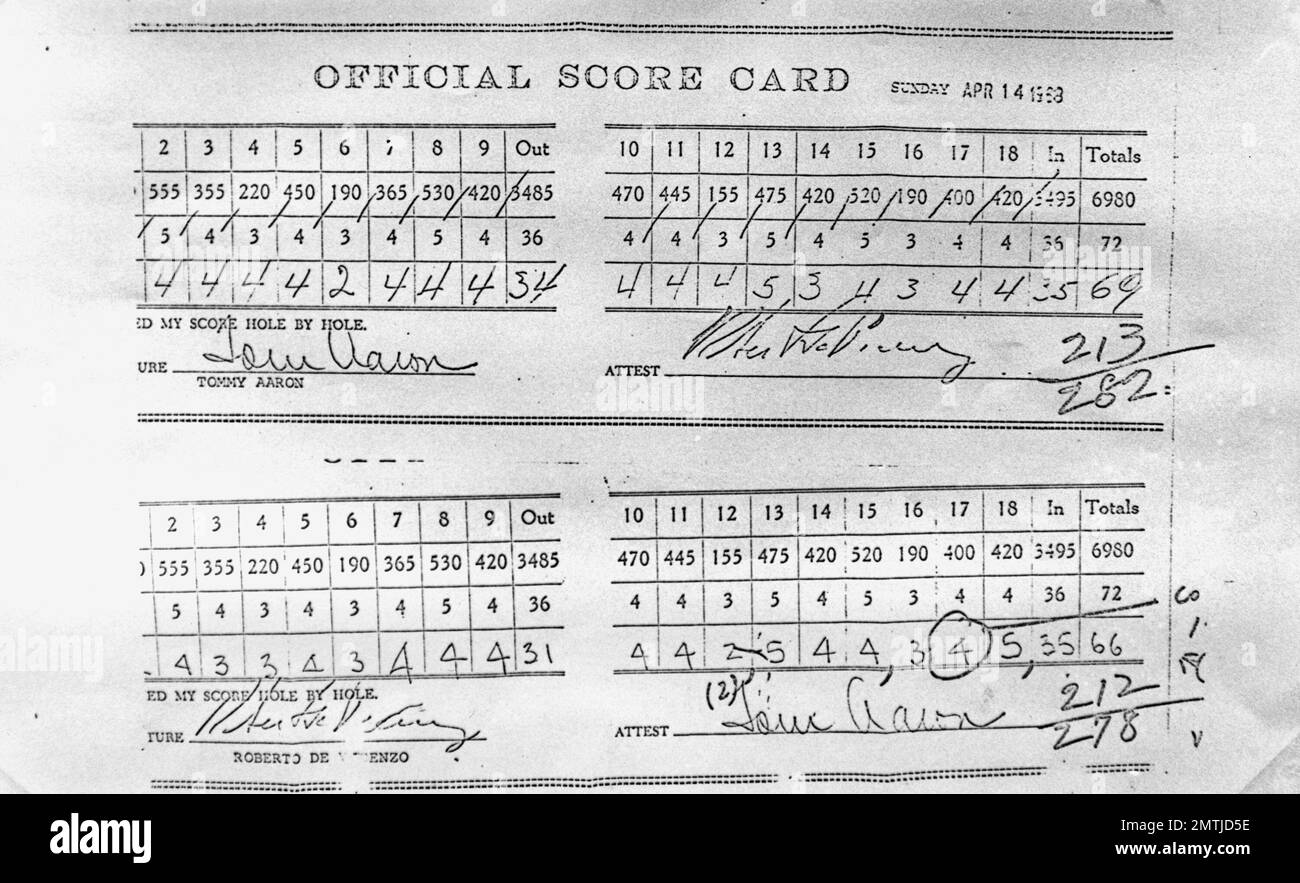 OFFICIAL SCORE CARD SUNDAY APR 14 1968
2 3 4 5 6 7 8 9 Out 10 11 12 13 14 15 16 17 18 In Totals
555 355 220 450 190 365 530 420 3485 470 445 155 475 420 520 190 400 420 3495 6980
5 4 3 4 3 4 5 4 36 4 4 3 5 4 5 3 4 4 36 72
4 4 4 4 2 4 4 4 34 4 4 4 5 3 4 3 4 4 35 69
ED MY SCORE HOLE BY HOLE.
URE Tom Aaron ATTEST 213
TOMMY AARON 282
2 3 4 5 6 7 8 9 Out 10 11 12 13 14 15 16 17 18 In Totals
555 355 220 450 190 365 530 420 3485 470 445 155 475 420 520 190 400 420 3495 6980
5 4 3 4 3 4 5 4 36 4 4 3 5 4 5 3 4 4 36 72
4 3 3 4 3 4 4 4 31 4 4 2 5 4 4 3 4 5 35 66
ED MY SCORE HOLE BY HOLE. (2) 212
TURE ATTEST Tom Aaron 278
ROBERTO DE ENZO
alamy
Image ID: 2MTJD5E
www.alamy.com